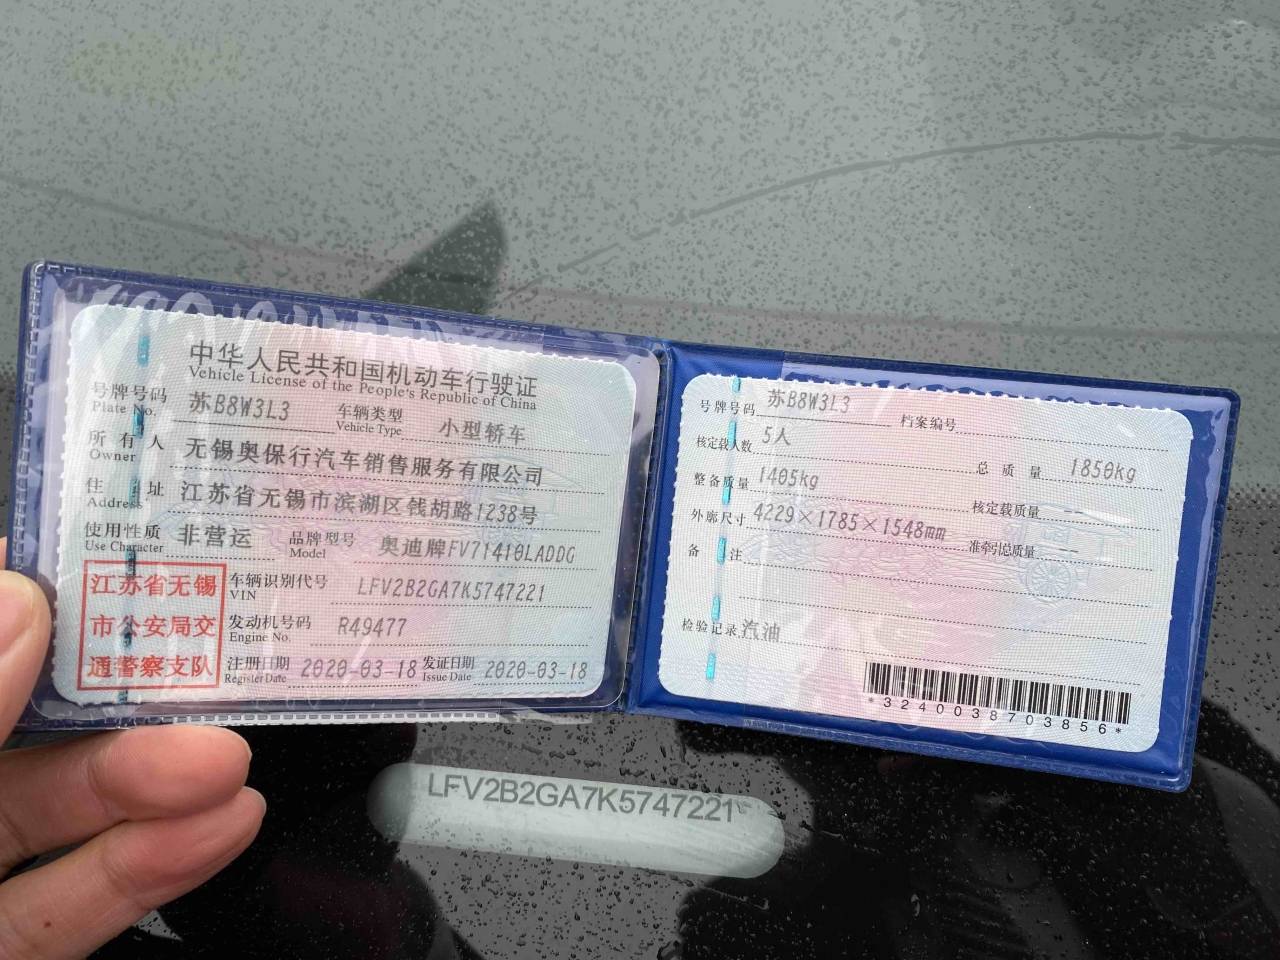 中华人民共和国机动车行驶证
Vehicle License of the People's Republic of China
号牌号码 苏B8W3L3 车辆类型 小型轿车
Plate No. Vehicle Type
所有人 无锡奥保行汽车销售服务有限公司
Owner
住址 江苏省无锡市滨湖区钱胡路1238号
Address
使用性质 非营运 品牌型号 奥迪牌FV71410LADDG
Use Character Model
江苏省无锡
市公安局交
通警察支队
车辆识别代号 LFV2B2GA7K5747221
VIN
发动机号码 R49477
Engine No.
注册日期 2020-03-18 发证日期 2020-03-18
Register Date Issue Date
号牌号码 苏B8W3L3 档案编号
核定载人数 5人 总质量 1850kg
整备质量 1405kg 核定载质量 --
外廓尺寸 4229×1785×1548mm 准牵引总质量 --
备注
检验记录 汽油
*3240038703856*
LFV2B2GA7K5747221